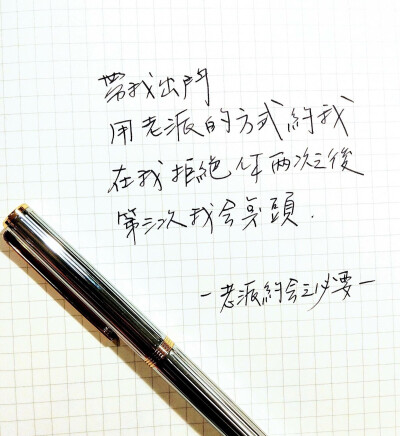 帶我出門
用老派的方式約我
在我拒絕你兩次之後
第三次我会點頭.
-老派約会之必要-